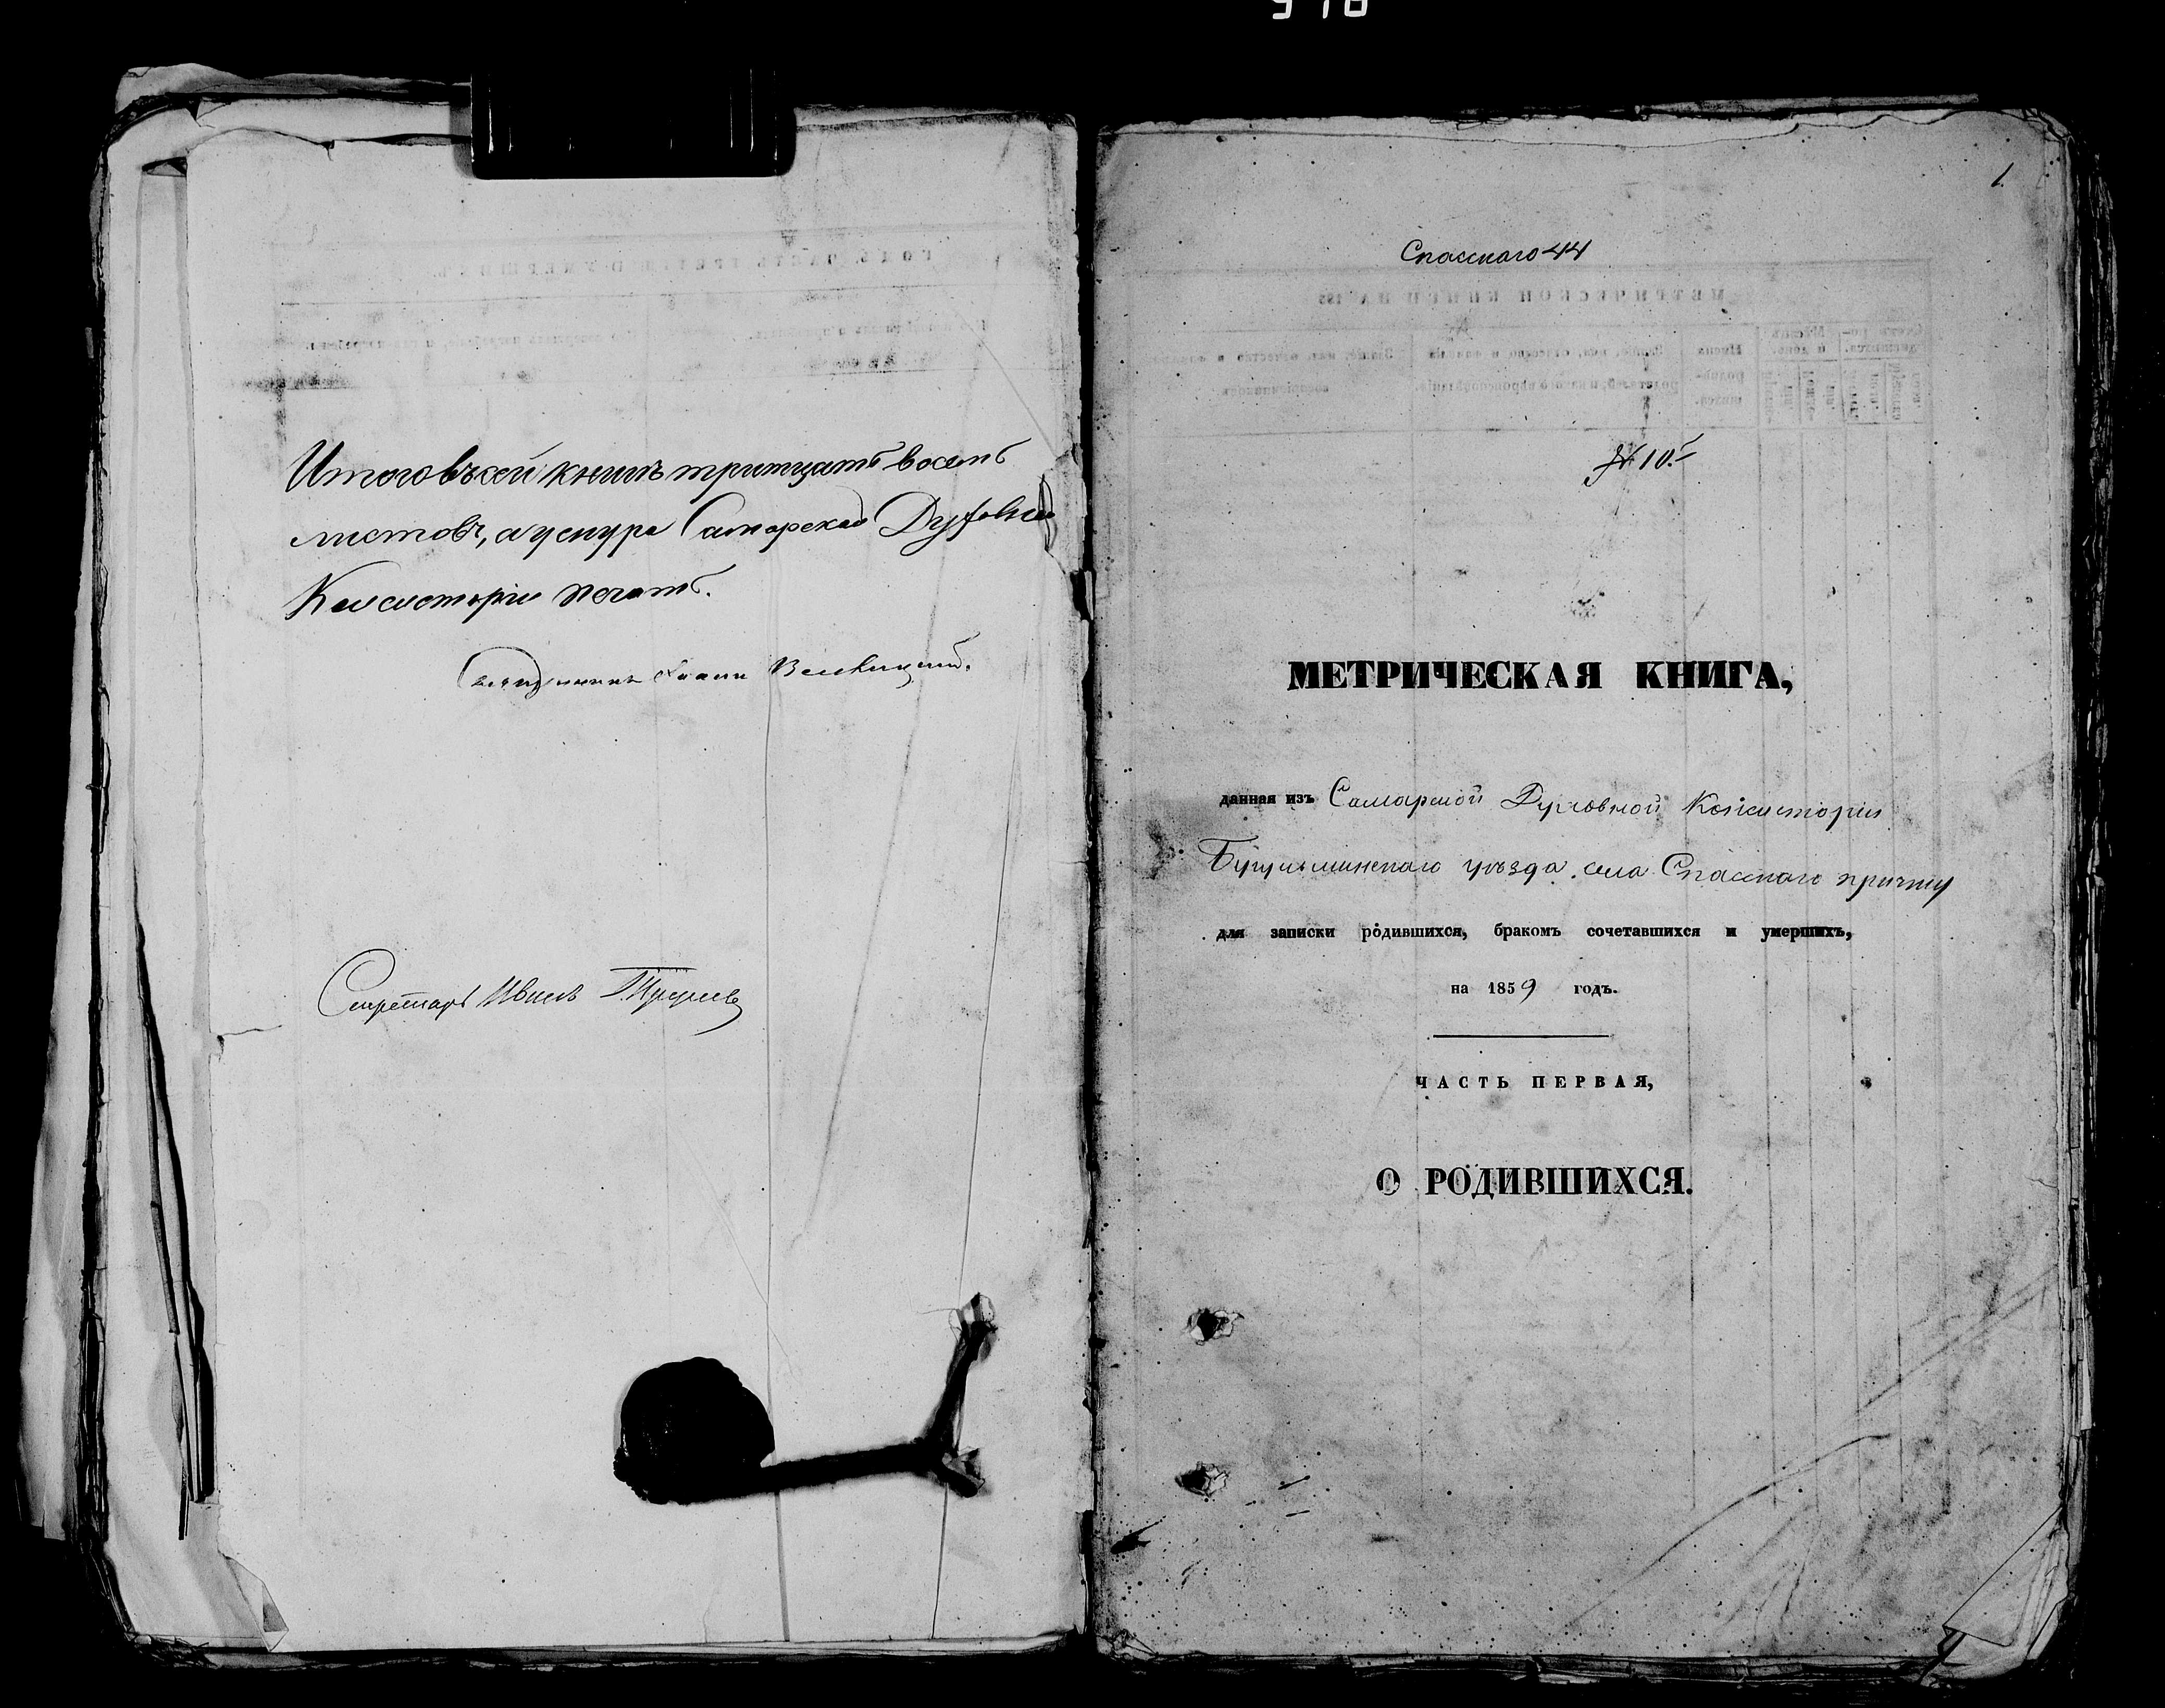 Итого въ сей книгѣ тритцать восемь
листовъ, а у снура Самарской Духовной
Консисторіи печать.
Священникъ Іоаннъ
Секретарь Иванъ
1
Спасскаго 44
№ 10.
МЕТРИЧЕСКАЯ КНИГА,
данная изъ Самарской Духовной Консисторіи
Бугульминскаго уѣзда села Спасскаго причту
для записки родившихся, бракомъ сочетавшихся и умершихъ,
на 1859 годъ.
ЧАСТЬ ПЕРВАЯ,
О РОДИВШИХСЯ.